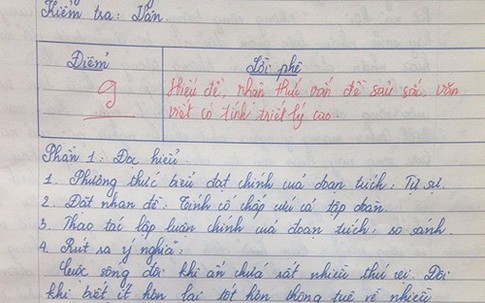 Kiểm tra: Văn.
Điểm
Lời phê
9
Hiểu đề, nhận thức vấn đề sâu sắc, văn
viết có tính triết lý cao.
Phần 1: Đọc hiểu.
1. Phương thức biểu đạt chính của đoạn trích: Tự sự.
2. Đặt nhan đề: Tính cố chấp cứu cả tập đoàn.
3. Thao tác lập luận chính của đoạn trích: so sánh.
4. Rút ra ý nghĩa:
Cuộc sống đôi khi ẩn chứa rất nhiều thú vị. Đôi
khi biết ít hơn lại tốt hơn thông tuệ về nhiều